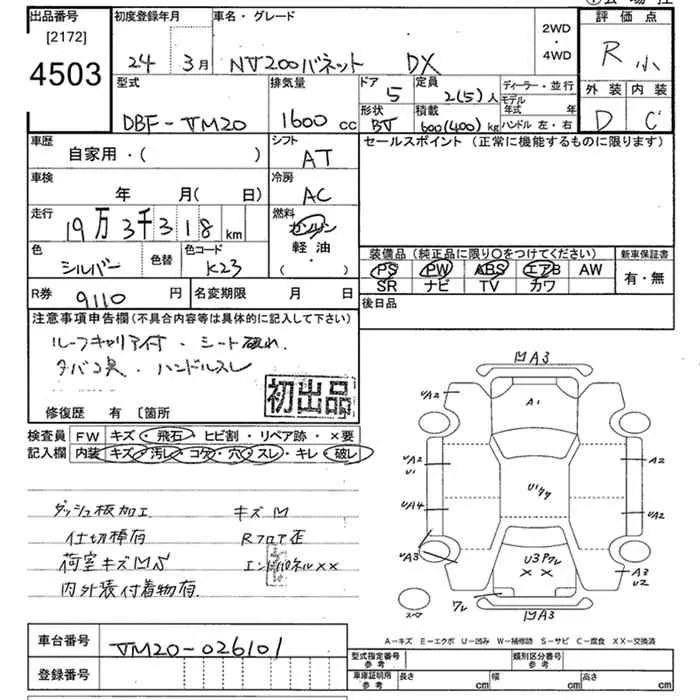 出品番号
[2172]
4503
初度登録年月
24 3月
車名・グレード
NV200バネット DX
2WD
・
4WD
評価点
R 小
外装 内装
D C
型式
DBF-VM20
排気量
1600 cc
ドア
5
定員
2(5)人
ディーラー・並行
モデル
年式 年
形状
BV
積載
600(400)kg
ハンドル 左・右
車歴
自家用・( )
シフト
AT
セールスポイント(正常に機能するものに限ります)
車検
年 月(日)
冷房
AC
走行
19万3千318km
燃料
ガソリン
軽油
( ・ )
色
シルバー
色替
色コード
K23
装備品(純正品に限り○をつけてください)
PS PW ABS エアB AW
SR ナビ TV カワ
新車保証書
有・無
R券
9110円
名変期限 月 日
後日品
注意事項申告欄(不具合内容等は具体的に記入して下さい)
ルーフキャリア付・シート破れ
タバコ臭・ハンドルスレ
初出品
修復歴 有 〔箇所
検査員
記入欄
FW キズ・飛石・ヒビ割・リペア跡・×要
内装 キズ・汚レ・コゲ・穴・スレ・キレ・破レ
ダッシュ板加工 キズM
仕切棒有 Rフロア歪
荷室キズMS エンドパネル××
内外装付着物有
MA3
UA2
A1
UA2
U1
A2
U1クク
UA4
UA2
UA3
U3Pワレ
××
A3
U2
ワレ
MA3
A-キズ E-エクボ U-凹み W-補修跡 S-サビ C-腐食 XX-交換済
車台番号
VM20-026101
登録番号
型式指定番号
参考
類別区分番号
参考
車庫証明用
参考
長さ cm 幅 cm 高さ cm